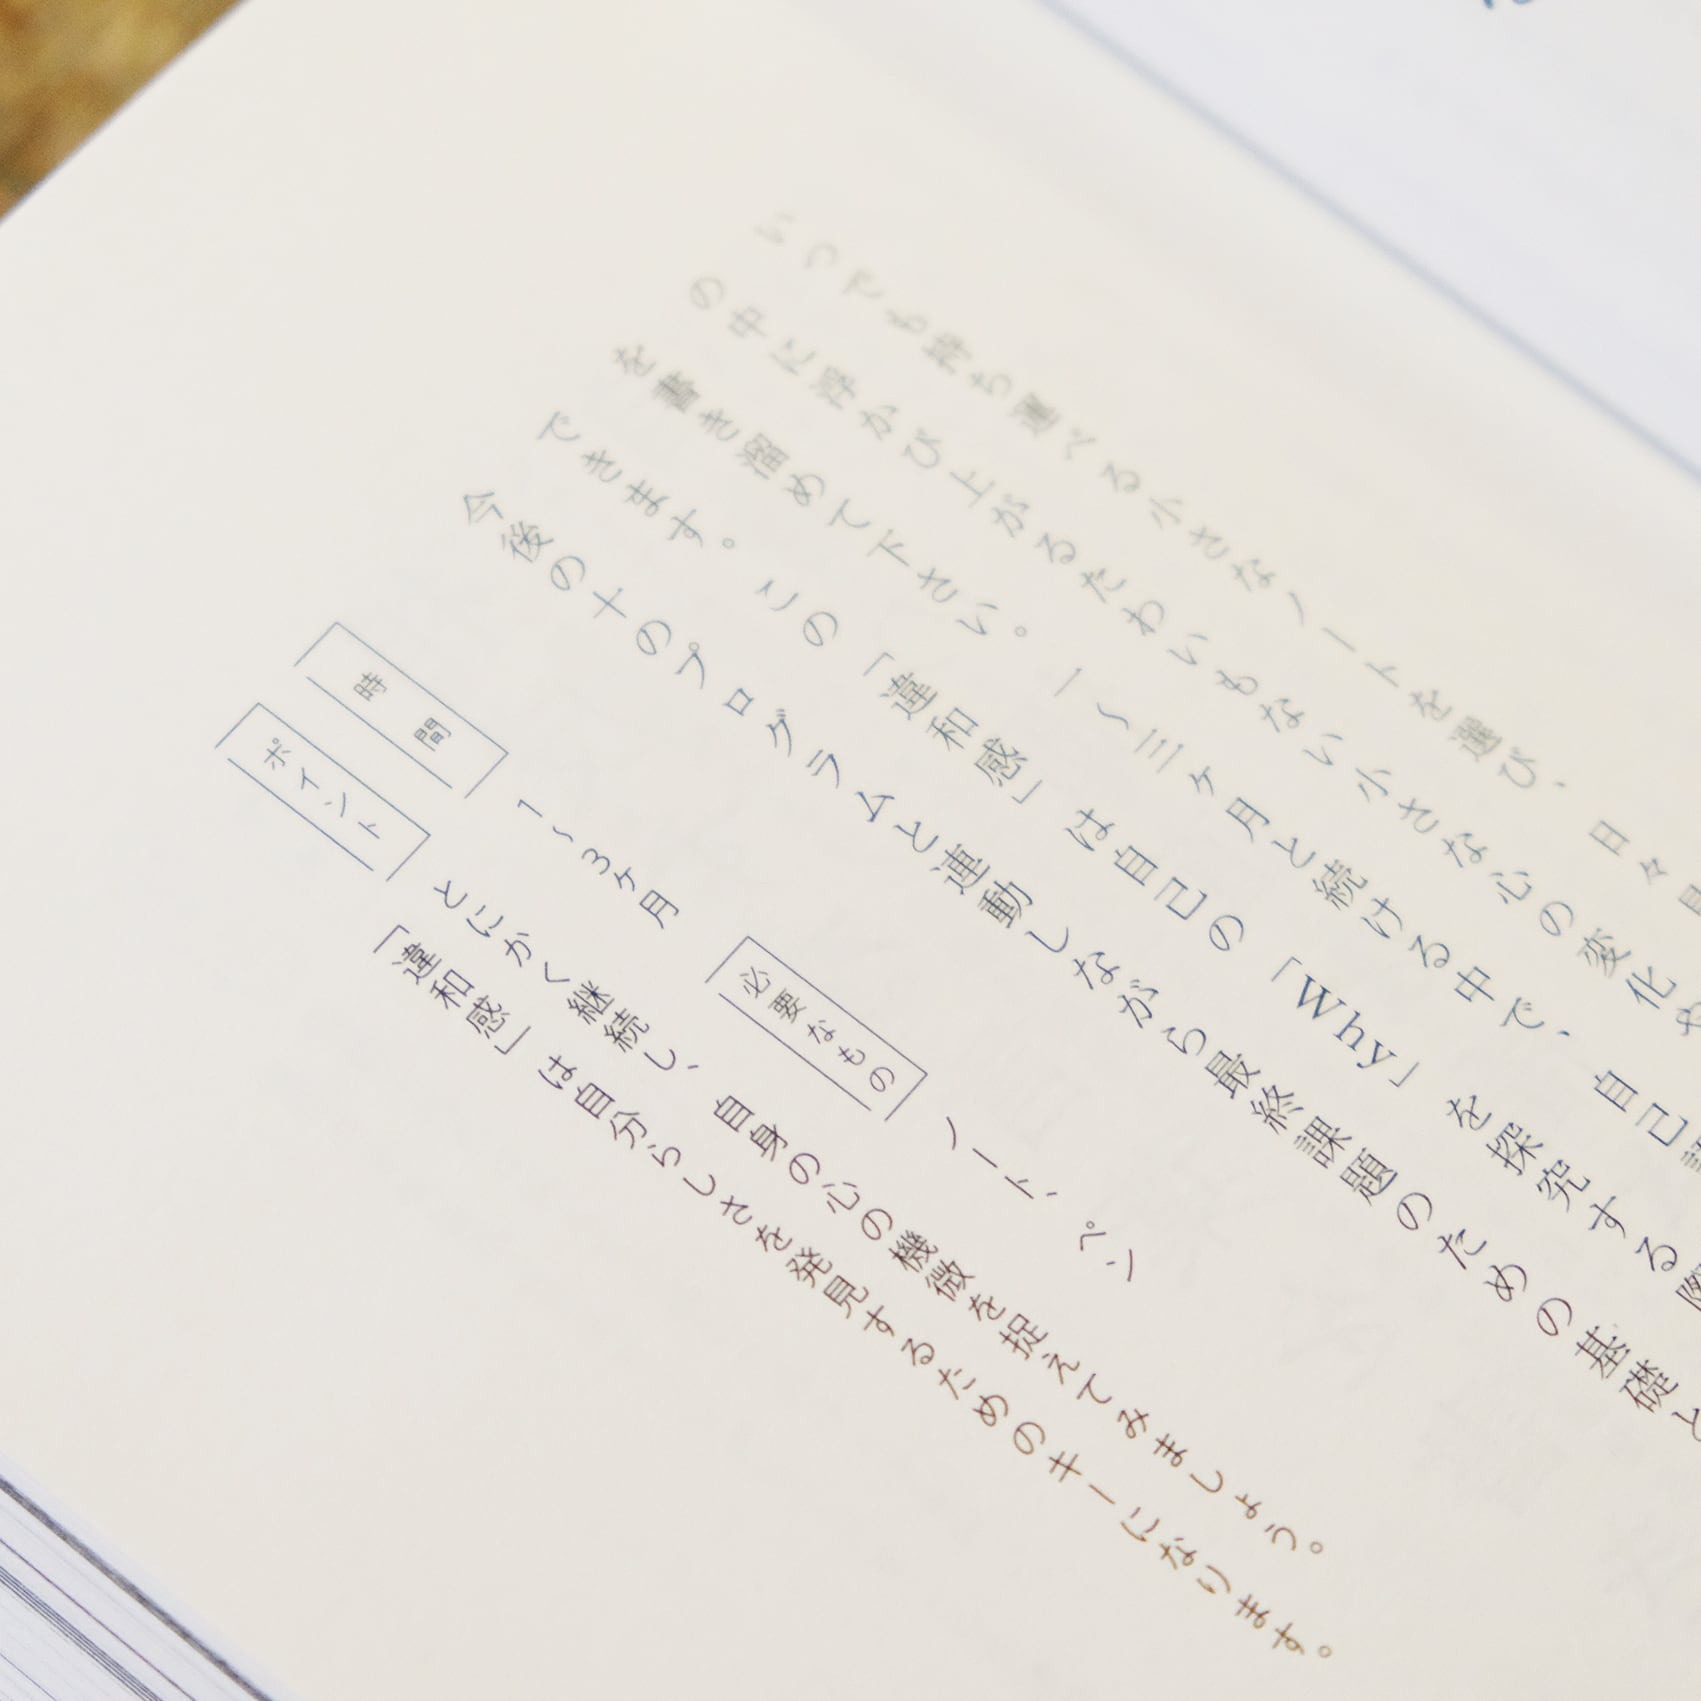 いつでも持ち運べる小さなノートを選び、日々
の中に浮かび上がるたわいもない小さな心の変化
を書き溜めて下さい。一〜三ヶ月と続ける中で、自己
できます。この「違和感」は自己の「Why」を探究する
今後の十のプログラムと連動しながら最終課題のための基礎と
時間 1〜3ヶ月 必要なもの ノート、ペン
ポイント とにかく継続し、自身の心の機微を捉えてみましょう。
「違和感」は自分らしさを発見するためのキーになります。